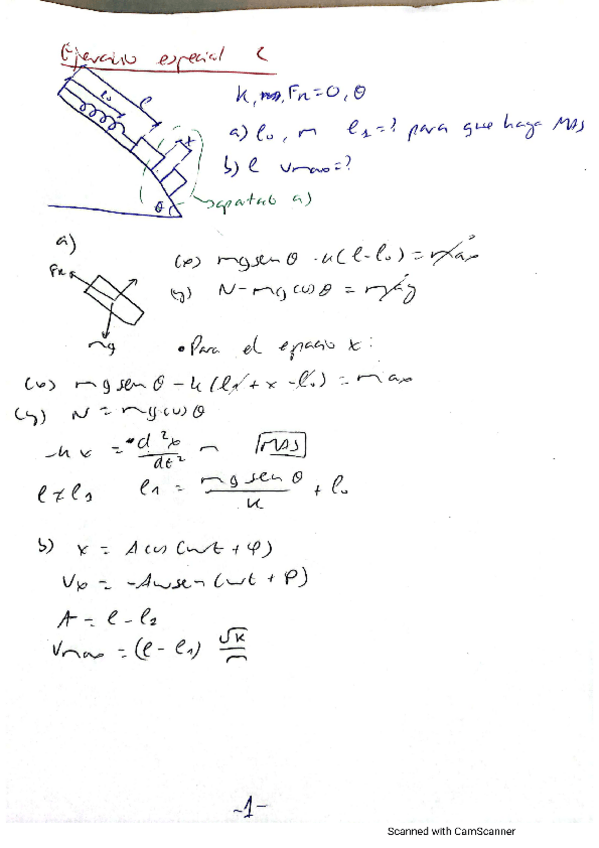 Ejercicio especial C
l
l₀
x
θ
k, m, Fr=0, θ
a) l₀, m l₁=? para que haga MAS
b) l vmax=?
apartado a)
a)
mg
(x) mg sen θ - k(l-l₀) = max
(y) N-mg cos θ = may
• Para el espacio x:
(x) mg sen θ - k(l₁ + x - l₀) = max
(y) N = mg cos θ
-k x = d²x/dt² m MAS
l ≠ l₁ l₁ = mg sen θ / k + l₀
b) x = A cos (wt + φ)
Vx = -Aw sen (wt + φ)
A = l - l₁
Vmax = (l - l₁) √k/m
-1-
Scanned with CamScanner